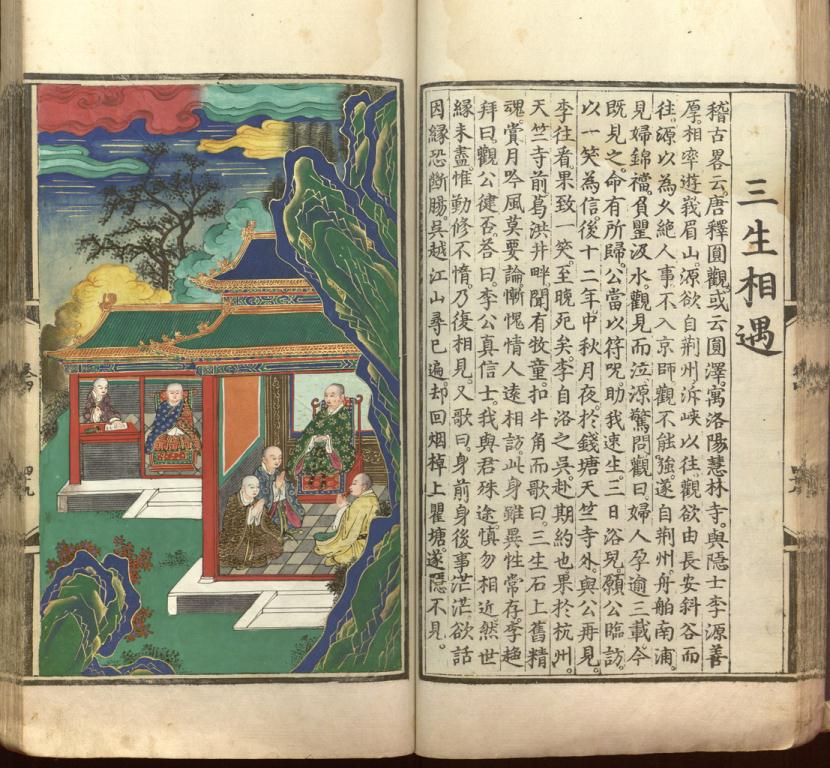 三生相遇
稽古畧云。唐釋圓觀。或云圓澤。寓洛陽慧林寺。與隱士李源善
厚。相率遊峩眉山。源欲自荆州泝峽以往。觀欲由長安斜谷而
往。源以為久絶人事。不入京師。觀不能強。遂自荆州。舟舶南浦。
見婦錦襠。負甖汲水。觀見而泣。源驚問。觀曰。婦人孕逾三載。今
既見之。命有所歸。公當以符呪。助我速生。三日浴兒。願公臨訪。
以一笑為信。後十二年。中秋月夜。於錢塘天竺寺外。與公再見。
李往看。果致一笑。至晚死矣。李自洛之吳。赴期約也。果於杭州。
天竺寺前。葛洪井畔。聞有牧童。扣牛角而歌曰。三生石上舊精
魂。賞月吟風莫要論。慚愧情人遠相訪。此身雖異性常存。李趨
拜曰。觀公徤否。荅曰。李公真信士。我與君殊途。慎勿相近。然世
緣未盡。惟勤修不惰。乃復相見。又歌曰。身前身後事茫茫。欲話
因緣恐斷腸。吳越江山尋已遍。却回烟棹上瞿塘。遂隱不見。